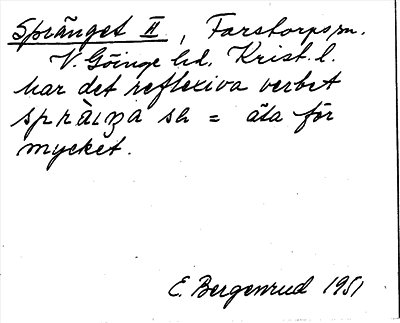 Spränget II, Farstorps sn.
V. Göinge hd. Krist. l.
har det reflexiva verbet
spràıŋa sɘ = äta för
mycket.
E. Bergenrud 1951